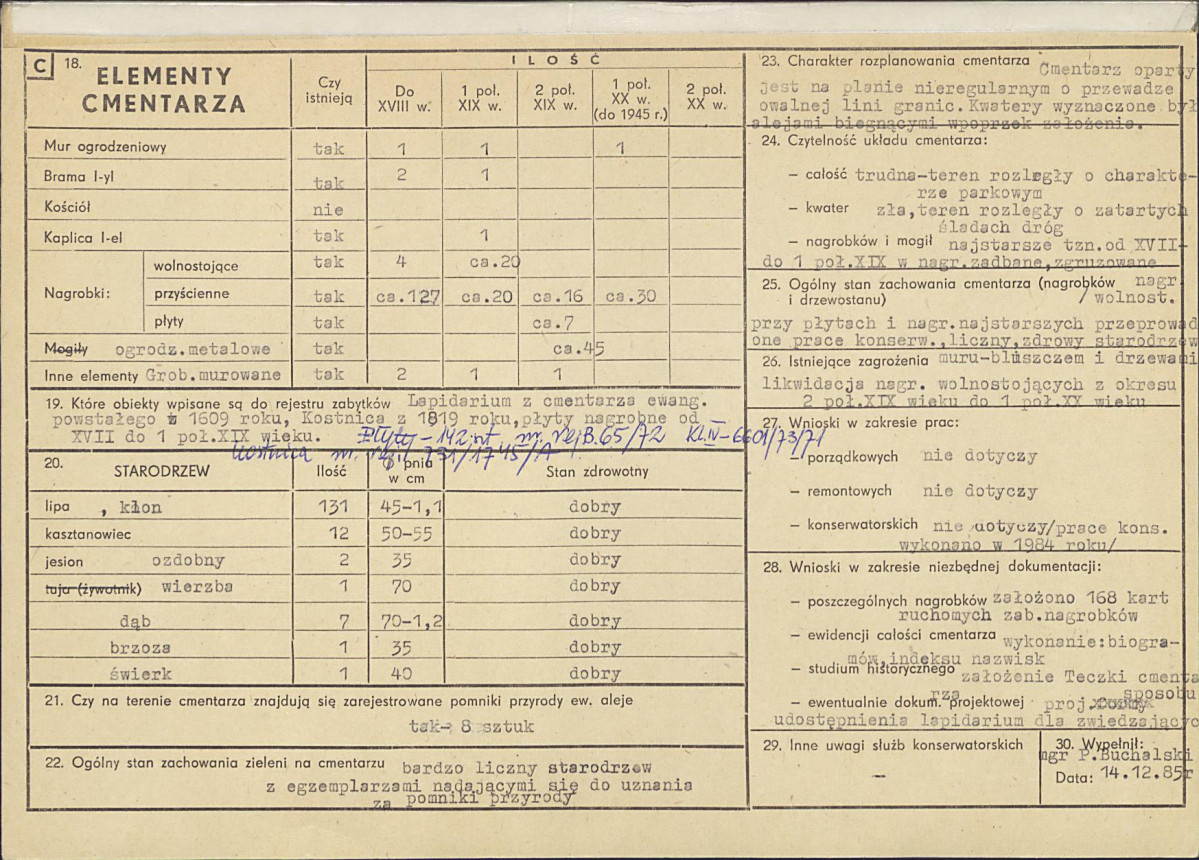 C 18. ELEMENTY CMENTARZA
Czy istnieją
ILOŚĆ
Do XVIII w.
1 poł. XIX w.
2 poł. XIX w.
1 poł. XX w. (do 1945 r.)
2 poł. XX w.
Mur ogrodzeniowy tak 1 1 1
Brama I-yl tak 2 1
Kościół nie
Kaplica I-el tak 1
Nagrobki:
wolnostojące tak 4 ca.20
przyścienne tak ca.127 ca.20 ca.16 ca.30
płyty tak ca.7
Mogiły ogrodz.metalowe tak ca.45
Inne elementy Grob.murowane tak 2 1 1
19. Które obiekty wpisane są do rejestru zabytków Lapidarium z cmentarza ewang.
powstałego z 1609 roku, Kostnica z 1819 roku,płyty nagrobne od
XVII do 1 poł.XIX wieku. Płyty - 142 nt nr. rej B.65/72 Kl.IV-6601/73/71
Kostnica nr. rej. 731/1745/A
20. STARODRZEW Ilość Ø pnia w cm Stan zdrowotny
lipa , klon 131 45-1,1 dobry
kasztanowiec 12 50-55 dobry
jesion ozdobny 2 35 dobry
tuja (żywotnik) wierzba 1 70 dobry
dąb 7 70-1,2 dobry
brzoza 1 35 dobry
świerk 1 40 dobry
21. Czy na terenie cmentarza znajdują się zarejestrowane pomniki przyrody ew. aleje
tak- 8 sztuk
22. Ogólny stan zachowania zieleni na cmentarzu bardzo liczny starodrzew
z egzemplarzami nadającymi się do uznania
za pomniki przyrody
23. Charakter rozplanowania cmentarza Cmentarz oparty
jest na planie nieregularnym o przewadze
owalnej lini granic.Kwatery wyznaczone był
alejami biegnącymi wpoprzek założenia.
24. Czytelność układu cmentarza:
– całość trudna-teren rozległy o charakte-
rze parkowym
– kwater zła,teren rozległy o zatartych
śladach dróg
– nagrobków i mogił najstarsze tzn.od XVII-
do 1 poł.XIX w nagr.zadbane,zgruzowane
25. Ogólny stan zachowania cmentarza (nagrobków nagr.
i drzewostanu) /wolnost.
przy płytach i nagr.najstarszych przeprowad
one prace konserw.,liczny,zdrowy starodrzew
26. Istniejące zagrożenia muru-bluszczem i drzewami
likwidacja nagr. wolnostojących z okresu
2 poł.XIX wieku do 1 poł.XX wieku
27. Wnioski w zakresie prac:
– porządkowych nie dotyczy
– remontowych nie dotyczy
– konserwatorskich nie dotyczy/prace kons.
wykonano w 1984 roku/
28. Wnioski w zakresie niezbędnej dokumentacji:
– poszczególnych nagrobków założono 168 kart
ruchomych zab.nagrobków
– ewidencji całości cmentarza wykonanie:biogra-
mów,indeksu nazwisk
– studium historycznego założenie Teczki cmenta
rza
– ewentualnie dokum. projektowej proj. sposobu
udostępnienia lapidarium dla zwiedzającyc
29. Inne uwagi służb konserwatorskich
–
30. Wypełnił:
mgr P.Buchalski
Data: 14.12.85r